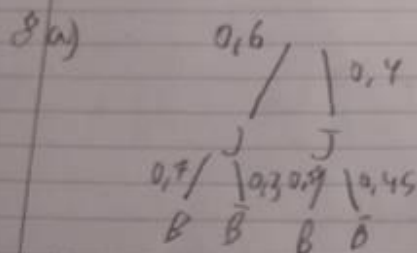 8 a)
0,6
0,4
J J
0,7 0,3 0,45
B B̄ B B̄